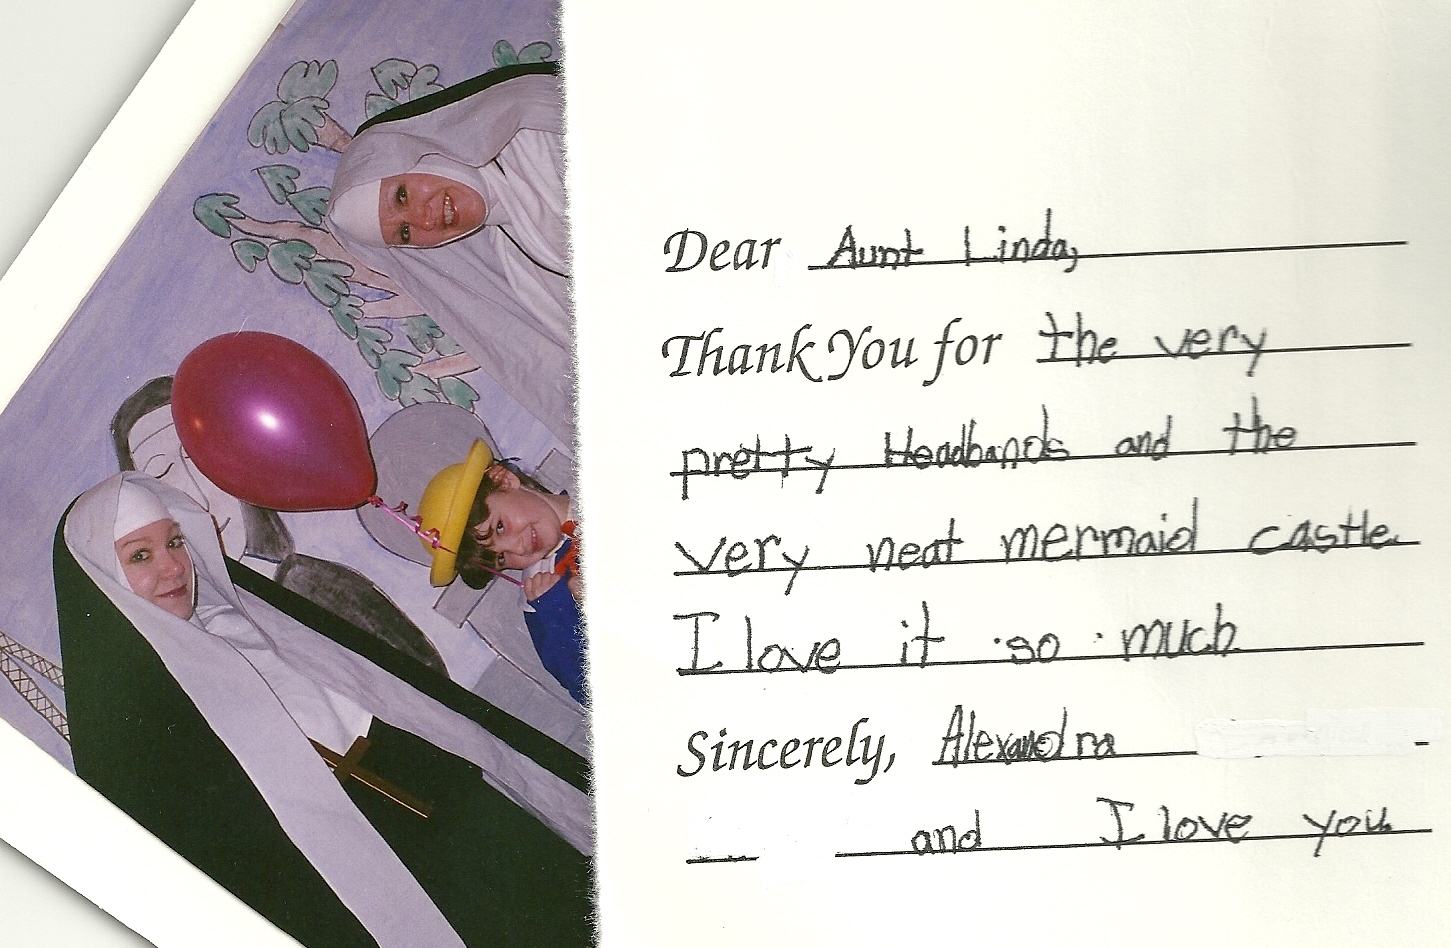 Dear Aunt Linda,
Thank You for the very
pretty Headbands and the
very neat mermaid castle.
I love it so much
Sincerely, Alexandra
and I love you